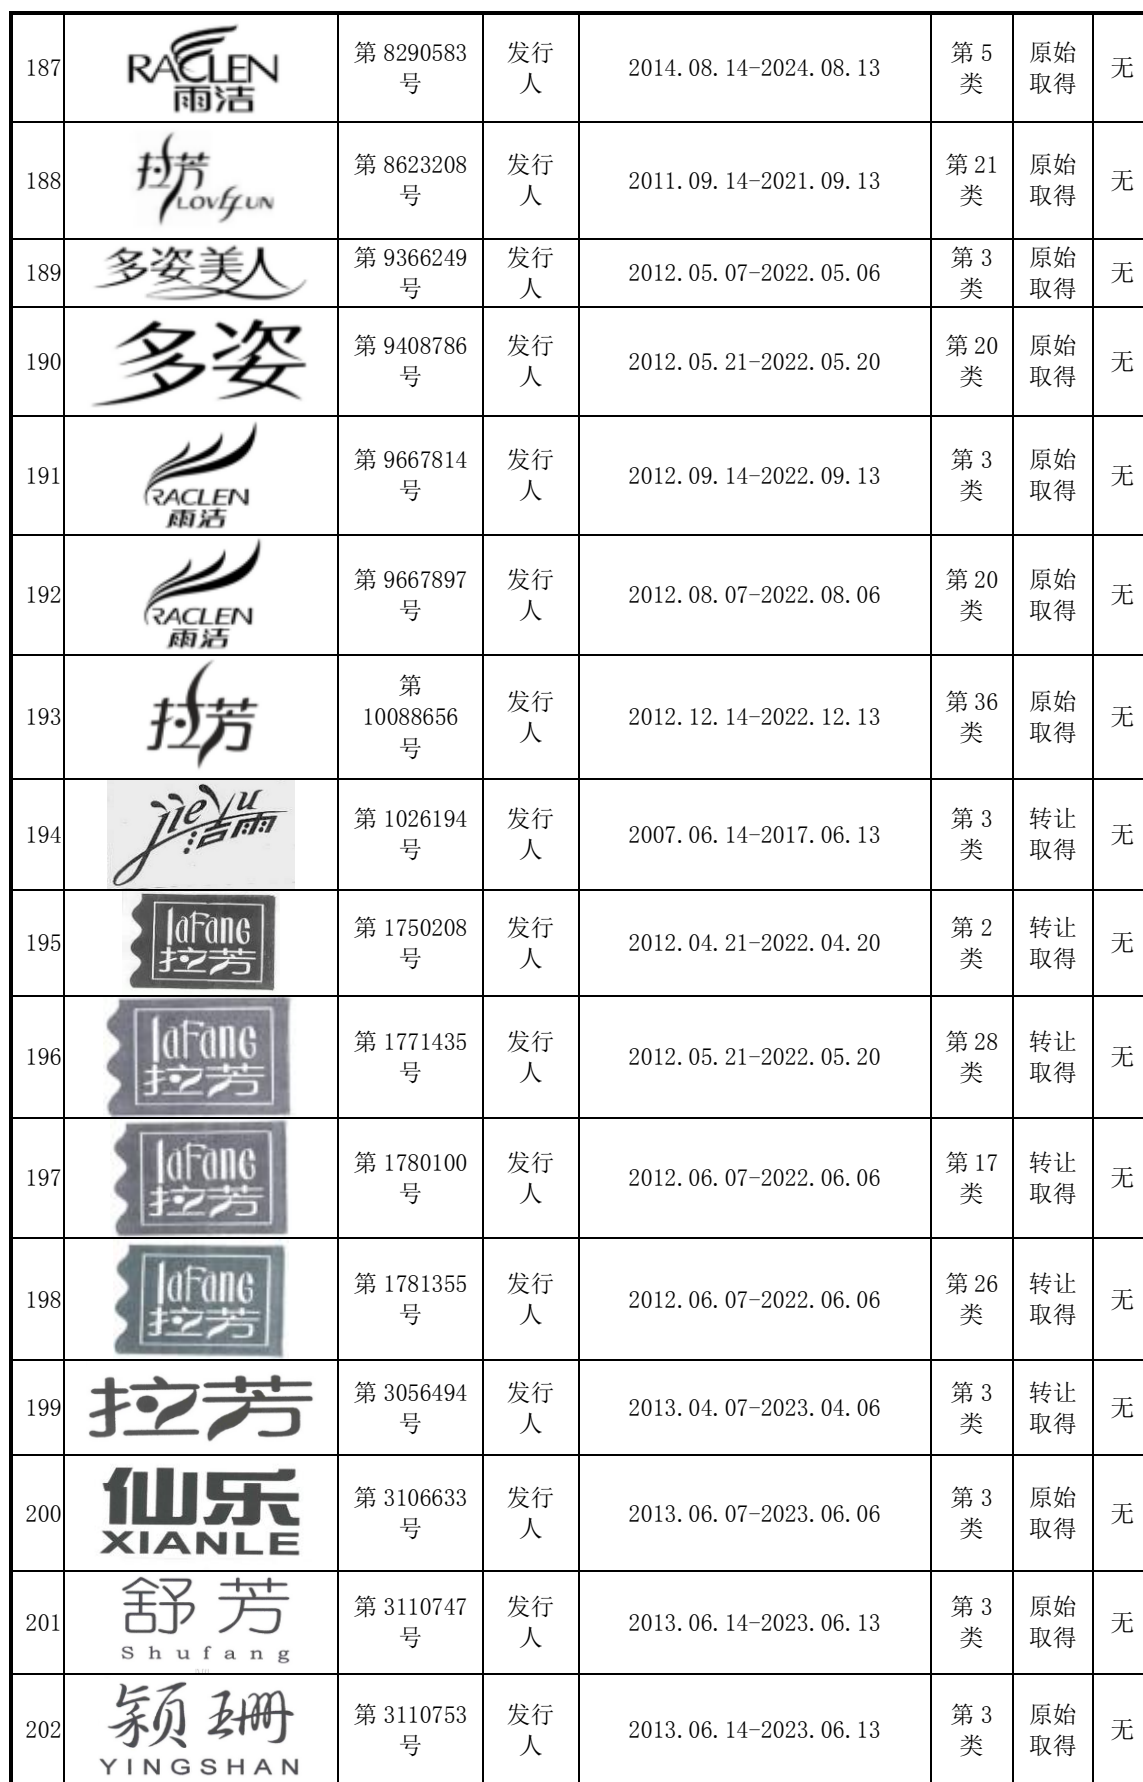 187 RACLEN 雨洁 第 8290583 号 发行人 2014.08.14-2024.08.13 第 5 类 原始取得 无
188 拉芳 LOVEFUN 第 8623208 号 发行人 2011.09.14-2021.09.13 第 21 类 原始取得 无
189 多姿美人 第 9366249 号 发行人 2012.05.07-2022.05.06 第 3 类 原始取得 无
190 多姿 第 9408786 号 发行人 2012.05.21-2022.05.20 第 20 类 原始取得 无
191 RACLEN 雨洁 第 9667814 号 发行人 2012.09.14-2022.09.13 第 3 类 原始取得 无
192 RACLEN 雨洁 第 9667897 号 发行人 2012.08.07-2022.08.06 第 20 类 原始取得 无
193 拉芳 第 10088656 号 发行人 2012.12.14-2022.12.13 第 36 类 原始取得 无
194 jieyu 洁雨 第 1026194 号 发行人 2007.06.14-2017.06.13 第 3 类 转让取得 无
195 laFang 拉芳 第 1750208 号 发行人 2012.04.21-2022.04.20 第 2 类 转让取得 无
196 laFang 拉芳 第 1771435 号 发行人 2012.05.21-2022.05.20 第 28 类 转让取得 无
197 laFang 拉芳 第 1780100 号 发行人 2012.06.07-2022.06.06 第 17 类 转让取得 无
198 laFang 拉芳 第 1781355 号 发行人 2012.06.07-2022.06.06 第 26 类 转让取得 无
199 拉芳 第 3056494 号 发行人 2013.04.07-2023.04.06 第 3 类 转让取得 无
200 仙乐 XIANLE 第 3106633 号 发行人 2013.06.07-2023.06.06 第 3 类 原始取得 无
201 舒芳 Shufang 第 3110747 号 发行人 2013.06.14-2023.06.13 第 3 类 原始取得 无
202 颖珊 YINGSHAN 第 3110753 号 发行人 2013.06.14-2023.06.13 第 3 类 原始取得 无